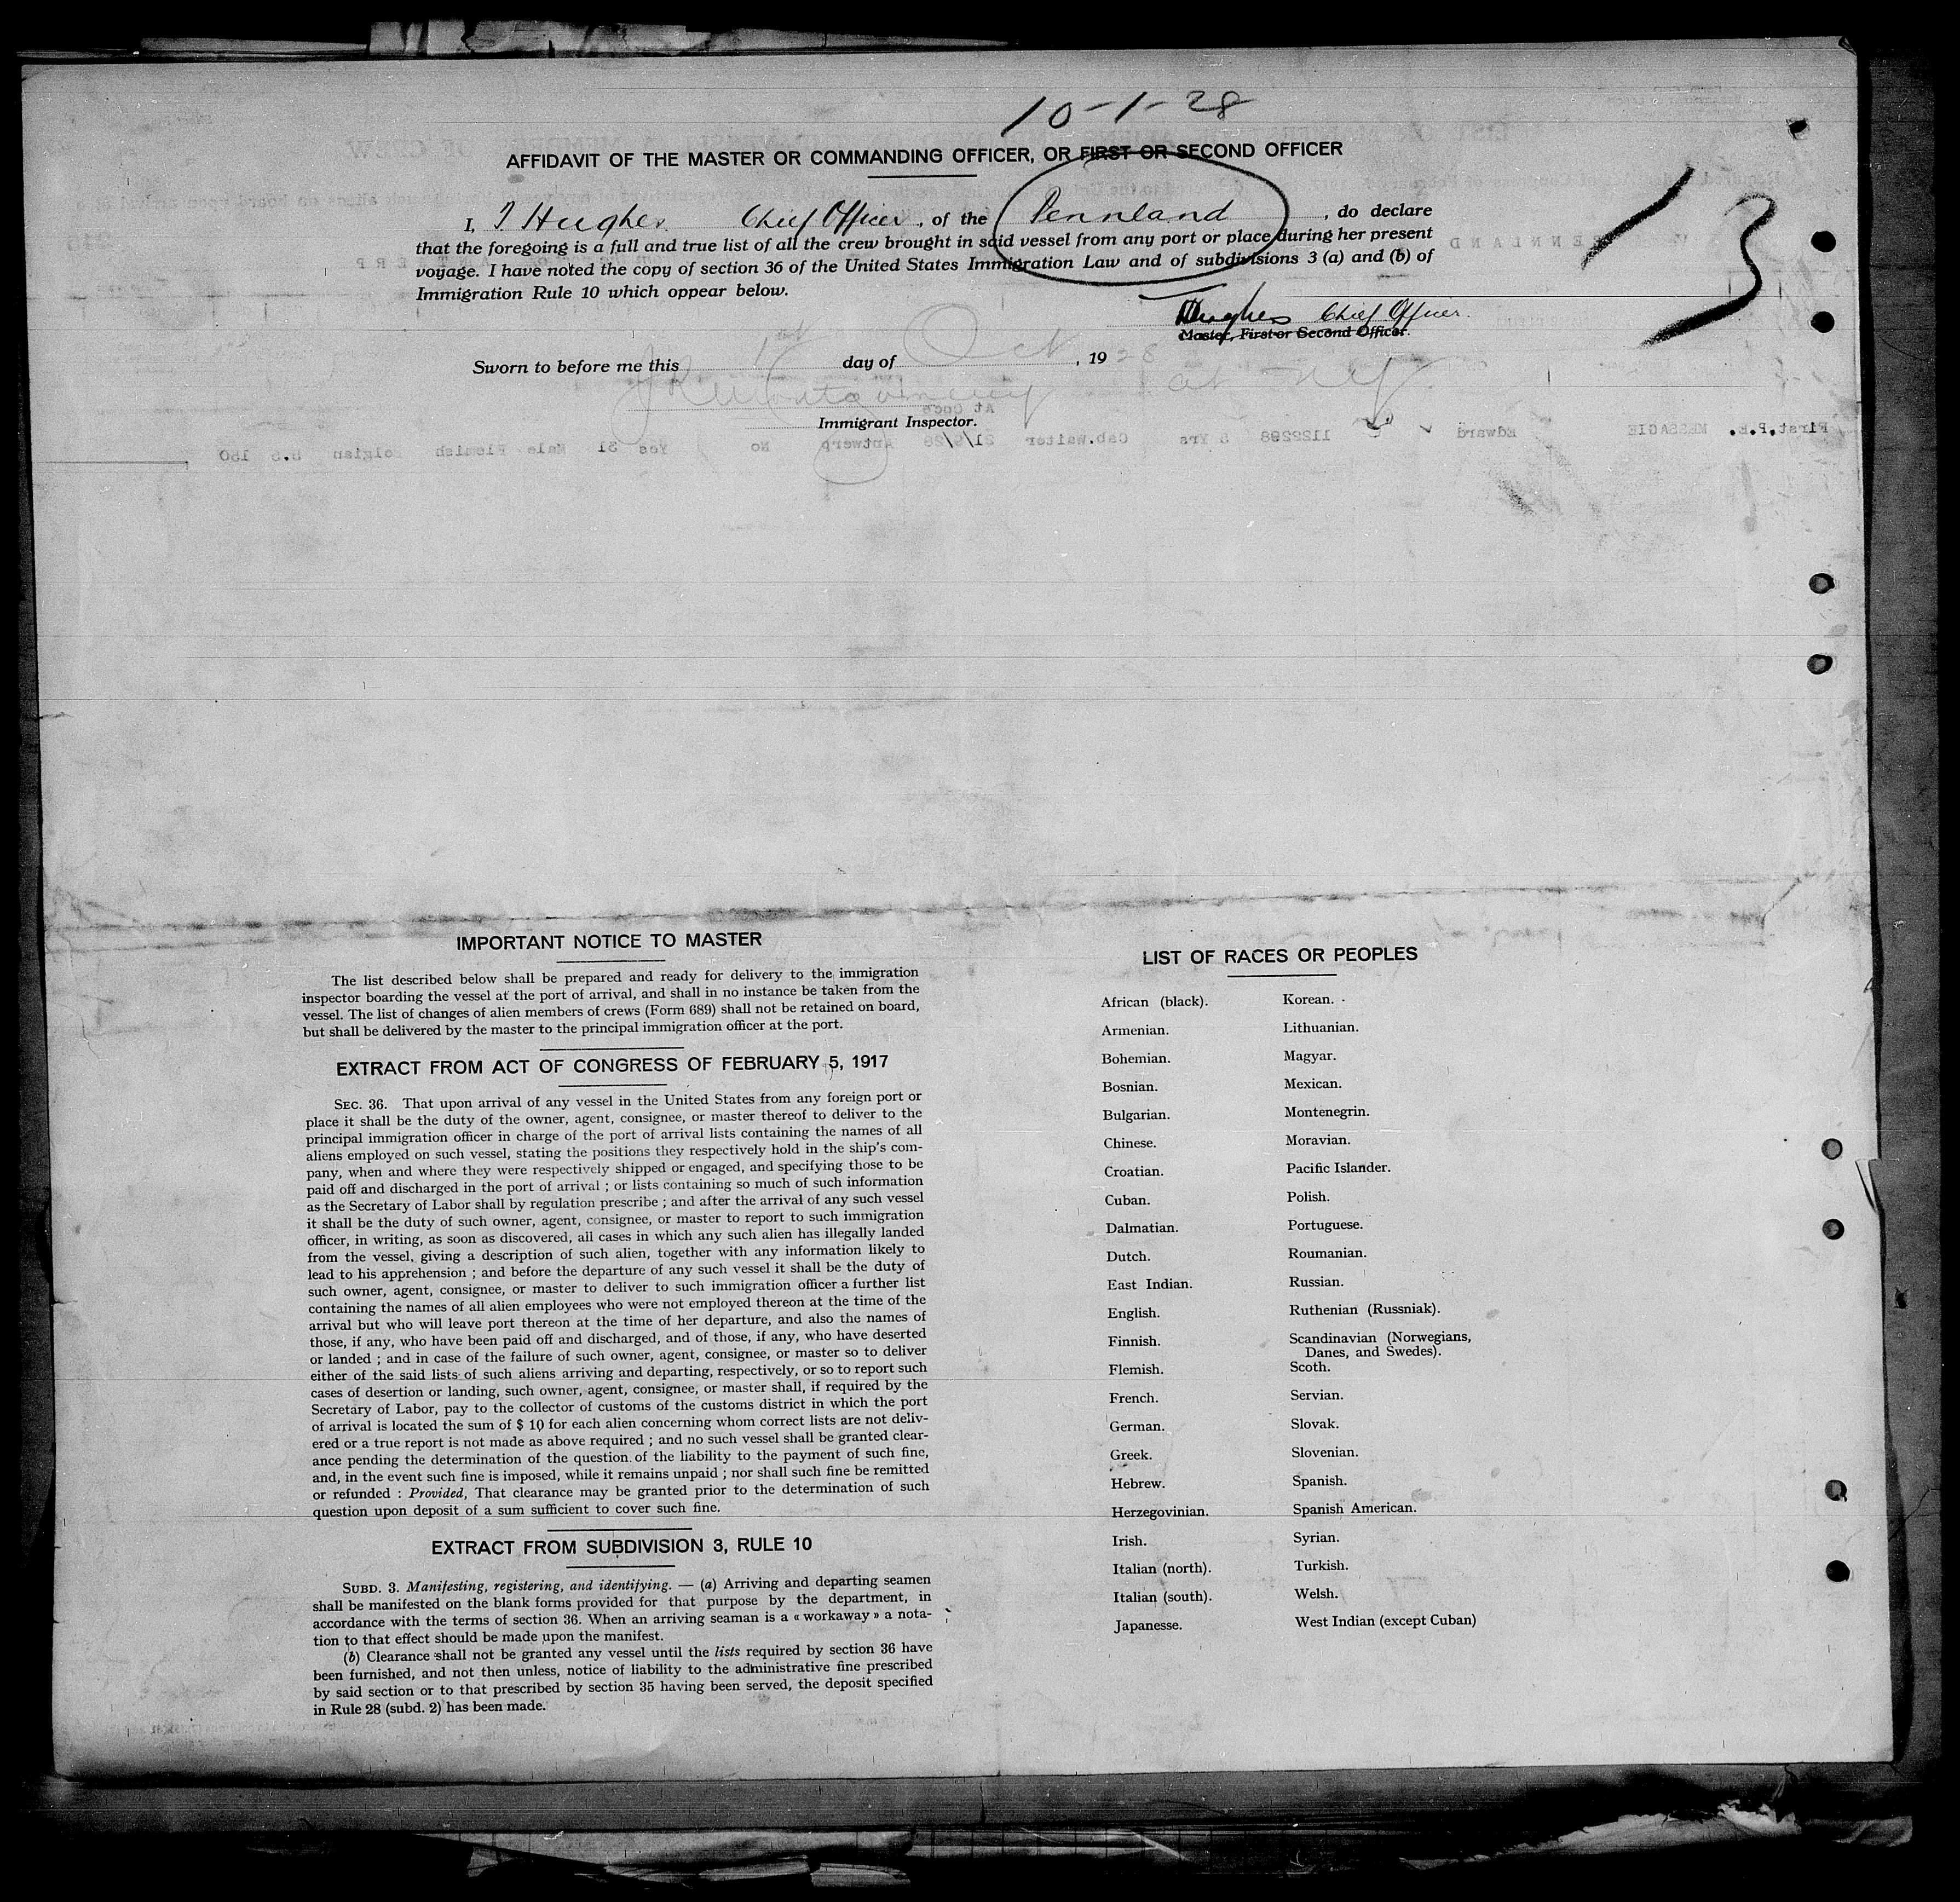 10-1-28
13
AFFIDAVIT OF THE MASTER OR COMMANDING OFFICER, OR FIRST OR SECOND OFFICER
I, T Hughes Chief Officer, of the Pennland, do declare
that the foregoing is a full and true list of all the crew brought in said vessel from any port or place during her present
voyage. I have noted the copy of section 36 of the United States Immigration Law and of subdivisions 3 (a) and (b) of
Immigration Rule 10 which oppear below.
Hughes Chief Officer.
Master, First or Second Officer.
Sworn to before me this 1st day of Oct, 19 28
Montgomery at NY
Immigrant Inspector.
IMPORTANT NOTICE TO MASTER
The list described below shall be prepared and ready for delivery to the immigration
inspector boarding the vessel at the port of arrival, and shall in no instance be taken from the
vessel. The list of changes of alien members of crews (Form 689) shall not be retained on board,
but shall be delivered by the master to the principal immigration officer at the port.
EXTRACT FROM ACT OF CONGRESS OF FEBRUARY 5, 1917
SEC. 36. That upon arrival of any vessel in the United States from any foreign port or
place it shall be the duty of the owner, agent, consignee, or master thereof to deliver to the
principal immigration officer in charge of the port of arrival lists containing the names of all
aliens employed on such vessel, stating the positions they respectively hold in the ship's com-
pany, when and where they were respectively shipped or engaged, and specifying those to be
paid off and discharged in the port of arrival ; or lists containing so much of such information
as the Secretary of Labor shall by regulation prescribe ; and after the arrival of any such vessel
it shall be the duty of such owner, agent, consignee, or master to report to such immigration
officer, in writing, as soon as discovered, all cases in which any such alien has illegally landed
from the vessel, giving a description of such alien, together with any information likely to
lead to his apprehension ; and before the departure of any such vessel it shall be the duty of
such owner, agent, consignee, or master to deliver to such immigration officer a further list
containing the names of all alien employees who were not employed thereon at the time of the
arrival but who will leave port thereon at the time of her departure, and also the names of
those, if any, who have been paid off and discharged, and of those, if any, who have deserted
or landed ; and in case of the failure of such owner, agent, consignee, or master so to deliver
either of the said lists of such aliens arriving and departing, respectively, or so to report such
cases of desertion or landing, such owner, agent, consignee, or master shall, if required by the
Secretary of Labor, pay to the collector of customs of the customs district in which the port
of arrival is located the sum of $ 10 for each alien concerning whom correct lists are not deliv-
ered or a true report is not made as above required ; and no such vessel shall be granted clear-
ance pending the determination of the question of the liability to the payment of such fine,
and, in the event such fine is imposed, while it remains unpaid ; nor shall such fine be remitted
or refunded : Provided, That clearance may be granted prior to the determination of such
question upon deposit of a sum sufficient to cover such fine.
EXTRACT FROM SUBDIVISION 3, RULE 10
SUBD. 3. Manifesting, registering, and identifying. — (a) Arriving and departing seamen
shall be manifested on the blank forms provided for that purpose by the department, in
accordance with the terms of section 36. When an arriving seaman is a « workaway » a nota-
tion to that effect should be made upon the manifest.
(b) Clearance shall not be granted any vessel until the lists required by section 36 have
been furnished, and not then unless, notice of liability to the administrative fine prescribed
by said section or to that prescribed by section 35 having been served, the deposit specified
in Rule 28 (subd. 2) has been made.
LIST OF RACES OR PEOPLES
African (black).
Armenian.
Bohemian.
Bosnian.
Bulgarian.
Chinese.
Croatian.
Cuban.
Dalmatian.
Dutch.
East Indian.
English.
Finnish.
Flemish.
French.
German.
Greek.
Hebrew.
Herzegovinian.
Irish.
Italian (north).
Italian (south).
Japanesse.
Korean.
Lithuanian.
Magyar.
Mexican.
Montenegrin.
Moravian.
Pacific Islander.
Polish.
Portuguese.
Roumanian.
Russian.
Ruthenian (Russniak).
Scandinavian (Norwegians,
Danes, and Swedes).
Scoth.
Servian.
Slovak.
Slovenian.
Spanish.
Spanish American.
Syrian.
Turkish.
Welsh.
West Indian (except Cuban)